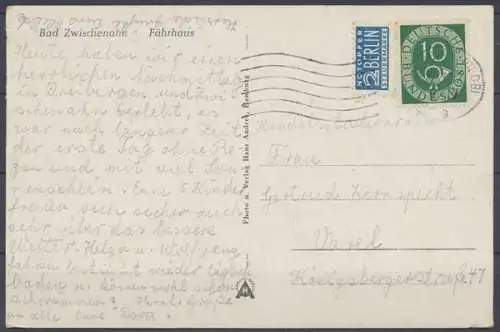 Bad Zwischenahn Fährhaus
Heute haben wir einen
herrlichen Nachmittag
in Dreibergen und Zwi-
schenahn verlebt, es
war nach langer Zeit
der erste Tag ohne Re-
gen und mit viel Son-
nenschein. Eure 5 Kinder
freuen sich sicher auch
sehr über das bessere
Wetter. Helga u. Wolfgang
fahren bestimmt wieder täglich
baden u. können wohl schon
schwimmen? Herzl. Grüße
an alle Eure Dora
Photo u. Verlag Hans Andres, Hamburg
NOTOPFER
2 BERLIN
STEUERMARKE
DEUTSCHE BUNDESPOST
10
Frau
Gertrud Zernspecht
Varel
Königsbergerstraße 47